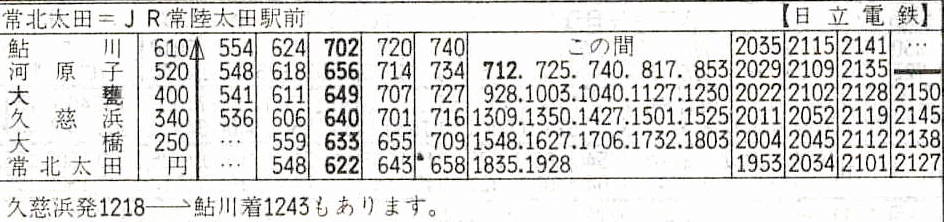 常北太田=JR常陸太田駅前 【日立電鉄】
鮎川 610 554 624 702 720 740 この間 2035 2115 2141 …
河原子 520 548 618 656 714 734 712. 725. 740. 817. 853 2029 2109 2135 ━
大甕 400 541 611 649 707 727 928.1003.1040.1127.1230 2022 2102 2128 2150
久慈浜 340 536 606 640 701 716 1309.1350.1427.1501.1525 2011 2052 2119 2145
大橋 250 … 559 633 655 709 1548.1627.1706.1732.1803 2004 2045 2112 2138
常北太田 円 … 548 622 643 658 1835.1928 1953 2034 2101 2127
久慈浜発1218─→鮎川着1243もあります。